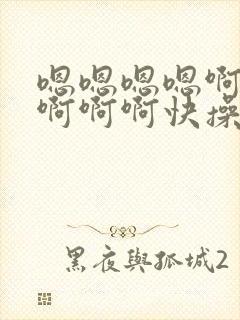 嗯嗯嗯嗯啊
啊啊啊快操
黑夜與孤城2